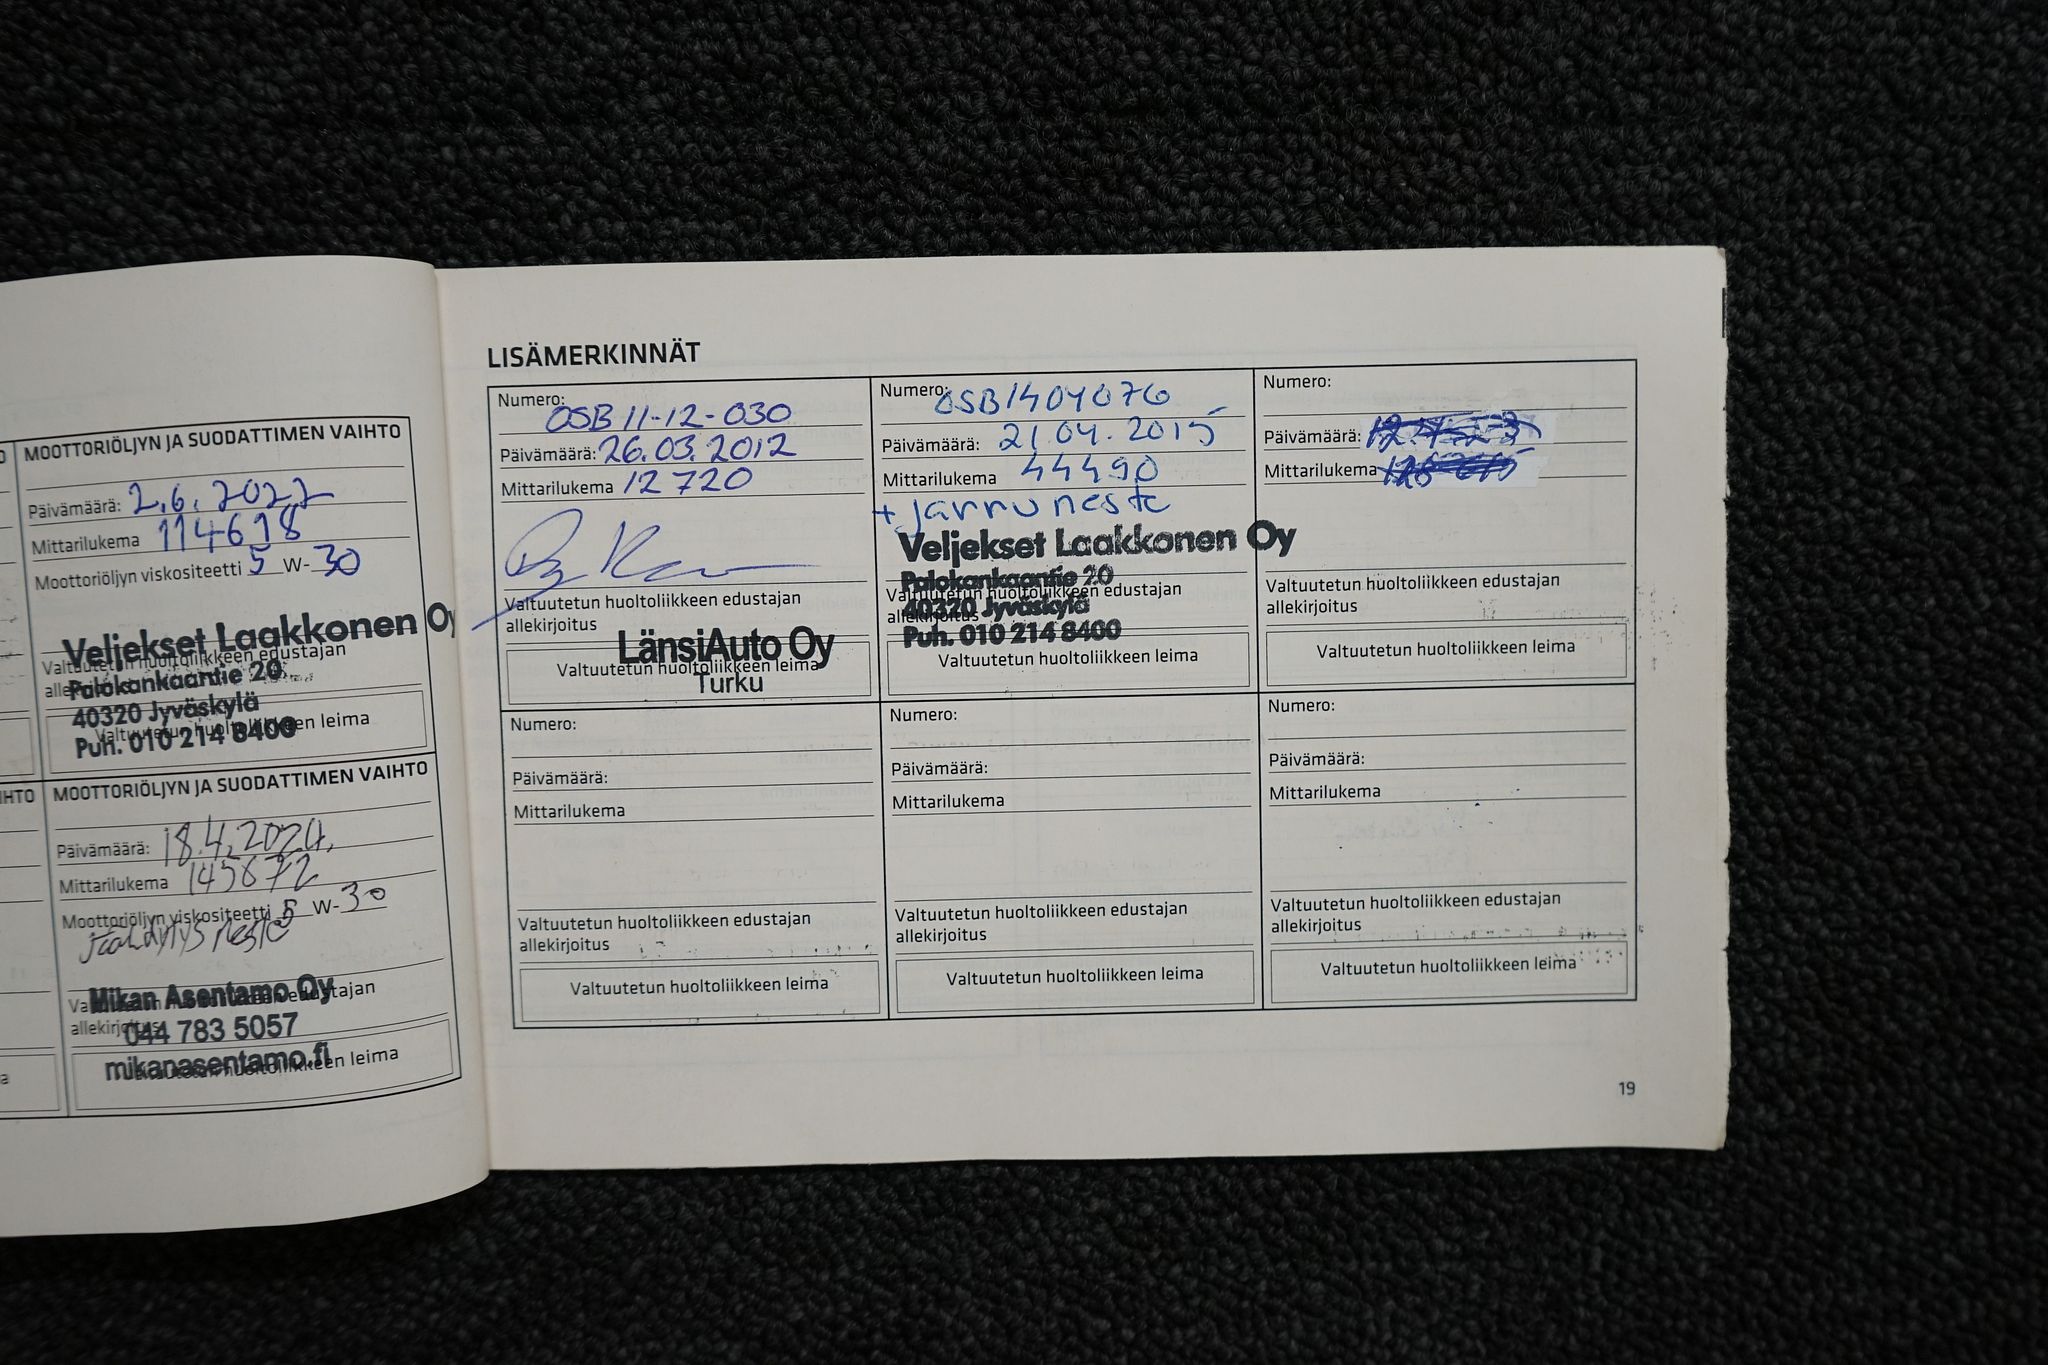 MOOTTORIÖLJYN JA SUODATTIMEN VAIHTO
Päivämäärä: 2.6.2022
Mittarilukema 114618
Moottoriöljyn viskositeetti 5 W-30
Veljekset Laakkonen Oy
Valtuutetun huoltoliikkeen edustajan
Palokankaantie 20
40320 Jyväskylä
Valtuutetun huoltoliikkeen leima
Puh. 010 214 8400
IHTO
MOOTTORIÖLJYN JA SUODATTIMEN VAIHTO
Päivämäärä: 18.4.2024.
Mittarilukema 145672
Moottoriöljyn viskositeetti 5 W-30
Jäähdytys neste
Mikan Asentamo Oy
Valtuutetun huoltoliikkeen edustajan
allekirjoitus
044 783 5057
mikanasentamo.fi
Valtuutetun huoltoliikkeen leima
LISÄMERKINNÄT
Numero: OSB 11-12-030
Päivämäärä: 26.03.2012
Mittarilukema 12 720
Valtuutetun huoltoliikkeen edustajan
allekirjoitus
LänsiAuto Oy
Valtuutetun huoltoliikkeen leima
Turku
Numero: OSB1404076
Päivämäärä: 21.04.2015
Mittarilukema 44490
+ jarruneste
Veljekset Laakkonen Oy
Palokankaantie 20
Valtuutetun huoltoliikkeen edustajan
40320 Jyväskylä
allekirjoitus
Puh. 010 214 8400
Valtuutetun huoltoliikkeen leima
Numero:
Päivämäärä:
Mittarilukema
Valtuutetun huoltoliikkeen edustajan
allekirjoitus
Valtuutetun huoltoliikkeen leima
Numero:
Päivämäärä:
Mittarilukema
Valtuutetun huoltoliikkeen edustajan
allekirjoitus
Valtuutetun huoltoliikkeen leima
Numero:
Päivämäärä:
Mittarilukema
Valtuutetun huoltoliikkeen edustajan
allekirjoitus
Valtuutetun huoltoliikkeen leima
Numero:
Päivämäärä:
Mittarilukema
Valtuutetun huoltoliikkeen edustajan
allekirjoitus
Valtuutetun huoltoliikkeen leima
19